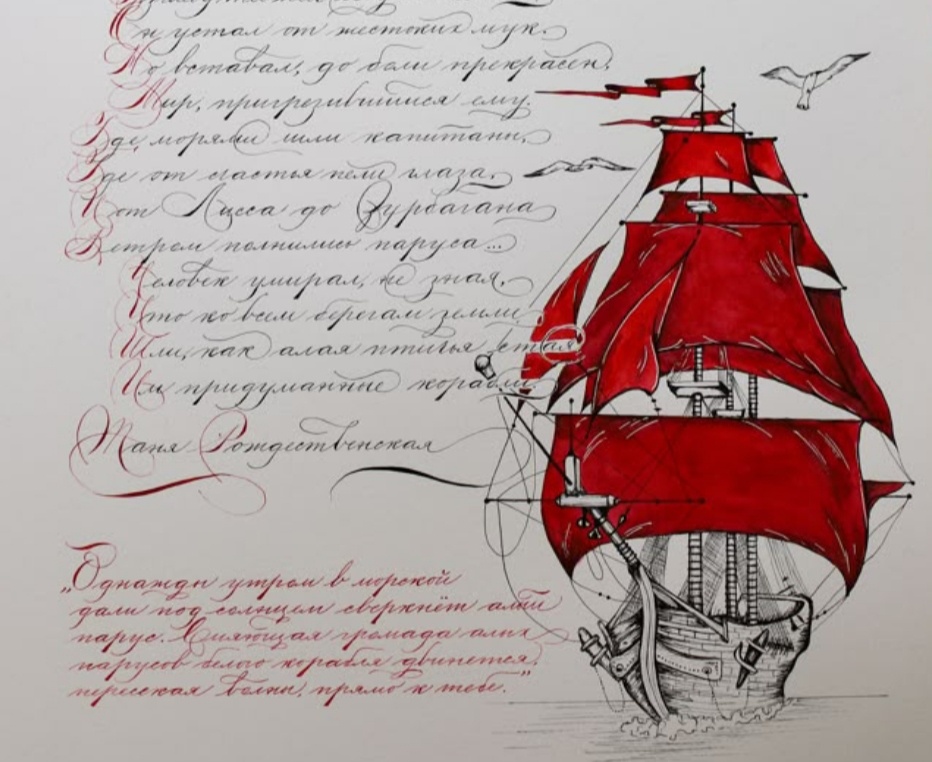 Он устал от жестоких мук.
Но вставал, до боли прекрасен,
Мир, пригрезившийся ему.
Где морями шли капитаны,
Где от счастья пели глаза,
И от Лисса до Зурбагана
Ветром полнились паруса...
Человек умирал, не зная,
Что ко всем берегам земли
Шли, как алая птичья стая
Им придуманные корабли.
Таня Рождественская
„Однажды утром в морской
дали под солнцем сверкнёт алый
парус. Сияющая громада алых
парусов белого корабля двинется,
пересекая волны, прямо к тебе."